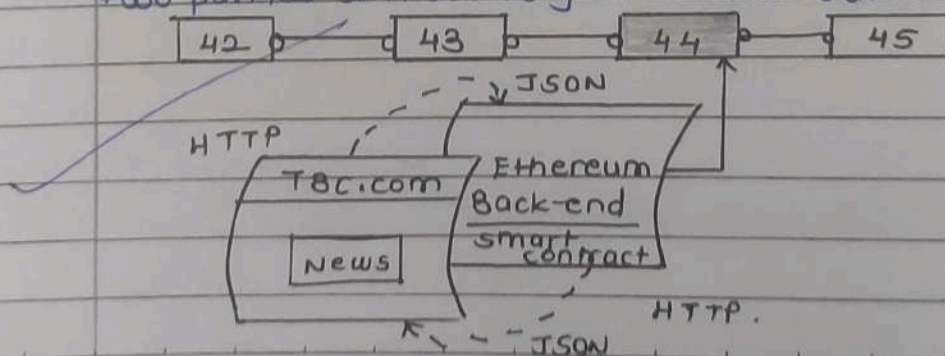 42 43 44 45
JSON
HTTP
TBC.com
Ethereum
Back-end
smart
contract
News
HTTP.
JSON